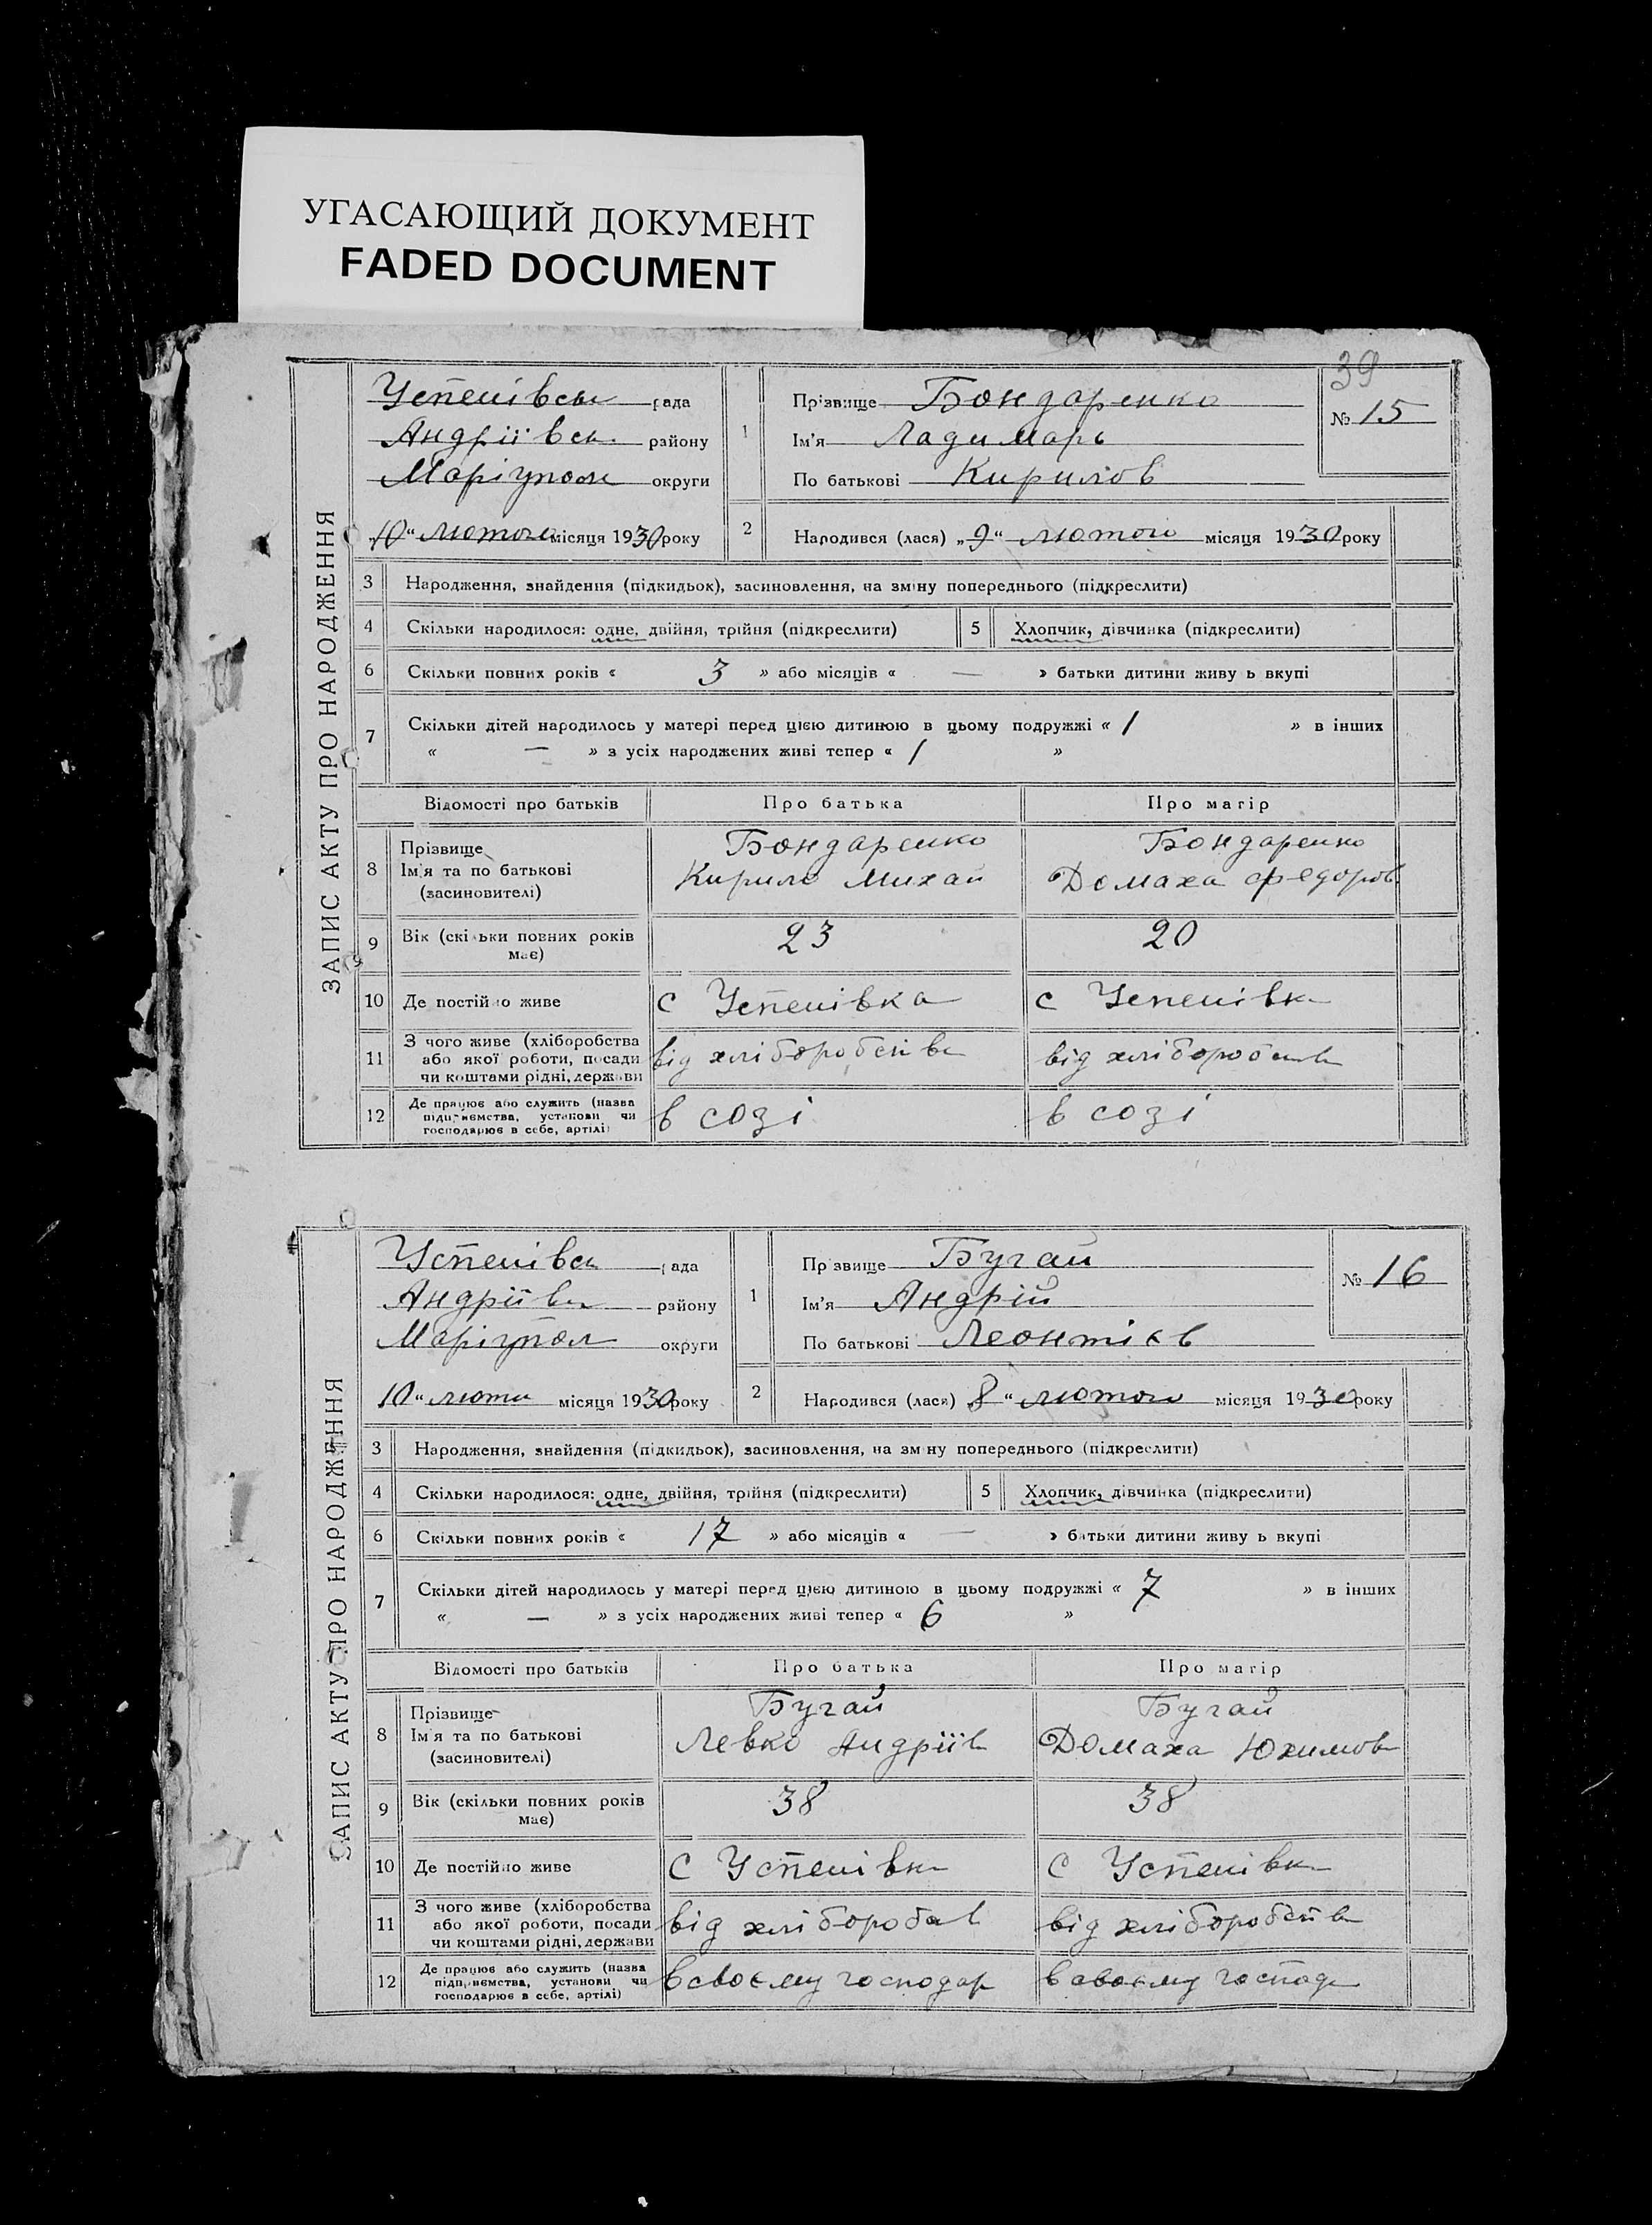 УГАСАЮЩИЙ ДОКУМЕНТ
FADED DOCUMENT
39
ЗАПИС АКТУ ПРО НАРОДЖЕННЯ
Успенівськ рада
Андріївськ. району
Маріупол округи
„10“ лютого місяця 1930 року
1
Прізвище Бондаренко
Ім'я Ладимарь
По батькові Кирилов
№ 15
2 Народився (лася) „9“ лютого місяця 1930 року
3 Народження, знайдення (підкидьок), засиновлення, на зміну попереднього (підкреслити)
4 Скільки народилося: одне, двійня, трійня (підкреслити) 5 Хлопчик, дівчинка (підкреслити)
6 Скільки повних років « 3 » або місяців « — » батьки дитини живу ь вкупі
7 Скільки дітей народилось у матері перед цією дитиною в цьому подружжі « 1 » в інших
« — » з усіх народжених живі тепер « 1 »
Відомості про батьків Про батька Про матір
8 Прізвище Бондаренко Бондаренко
Ім'я та по батькові Кирило Михай Домаха Федоров.
(засиновителі)
9 Вік (скільки повних років має) 23 20
10 Де постійно живе с Успенівка с Успенівк
11 З чого живе (хліборобства
або якої роботи, посади від хліборобств від хліборобств
чи коштами рідні, держави
12 Де працює або служить (назва
підприємства, установи чи в созі в созі
господарює в себе, артілі)
ЗАПИС АКТУ ПРО НАРОДЖЕННЯ
Успенівськ рада
Андріївк району
Маріупол округи
10“ люти місяця 1930 року
1
Прізвище Бугай
Ім'я Андрій
По батькові Леонтієв
№ 16
2 Народився (лася) 8“ лютого місяця 1930 року
3 Народження, знайдення (підкидьок), засиновлення, на зміну попереднього (підкреслити)
4 Скільки народилося: одне, двійня, трійня (підкреслити) 5 Хлопчик, дівчинка (підкреслити)
6 Скільки повних років « 17 » або місяців « — » батьки дитини живу ь вкупі
7 Скільки дітей народилось у матері перед цією дитиною в цьому подружжі « 7 » в інших
« — » з усіх народжених живі тепер « 6 »
Відомості про батьків Про батька Про матір
8 Прізвище Бугай Бугай
Ім'я та по батькові Левко Андріїв Домаха Юхимов
(засиновителі)
9 Вік (скільки повних років має) 38 38
10 Де постійно живе с Успенівк с Успенівк
11 З чого живе (хліборобства
або якої роботи, посади від хліборобств від хліборобств
чи коштами рідні, держави
12 Де працює або служить (назва
підприємства, установи чи в своєму господар в своєму господ
господарює в себе, артілі)